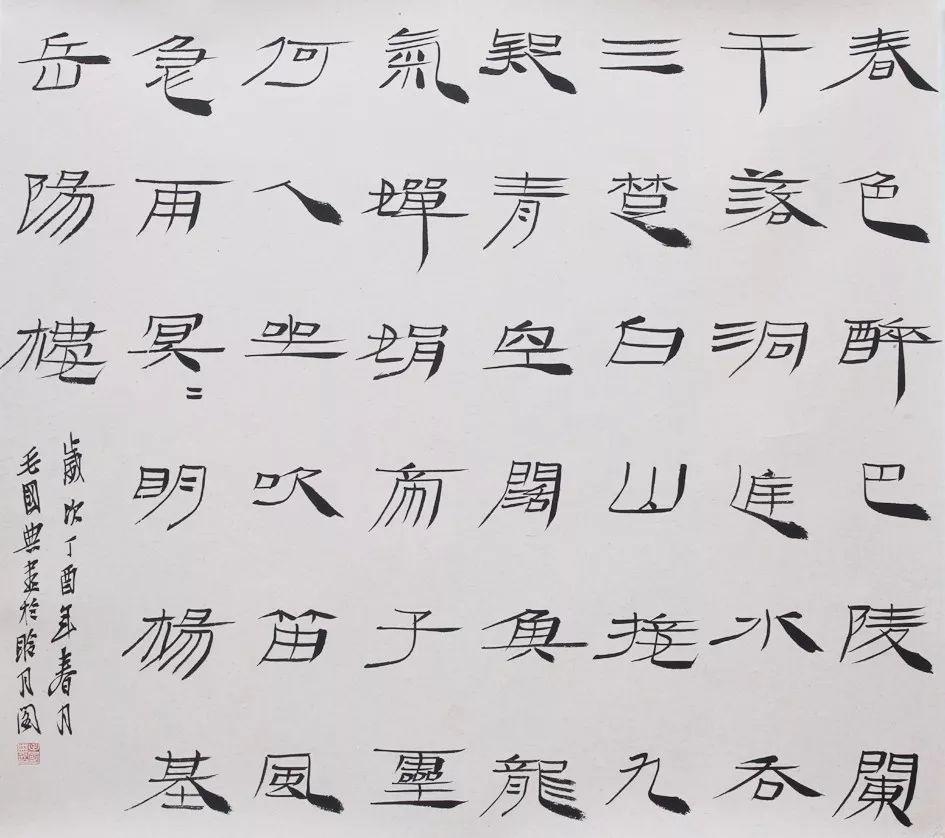 春色醉巴陵闌
干落洞庭水吞
三楚白山接九
疑青空闊魚龍
氣嬋娟帝子靈
何人坐吹笛風
急雨冥〻明楊基
岳陽樓
歲次丁酉年春月
毛國典書於聆月閣